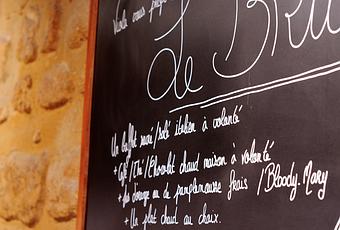 Vente vous
Le Bru
Un buffet sucré/salé italien à volonté
+ Café/Thé/Chocolat chaud maison à volonté
+ Jus d'orange ou de pamplemousse frais / Bloody-Mary
+ Un plat chaud au choix.